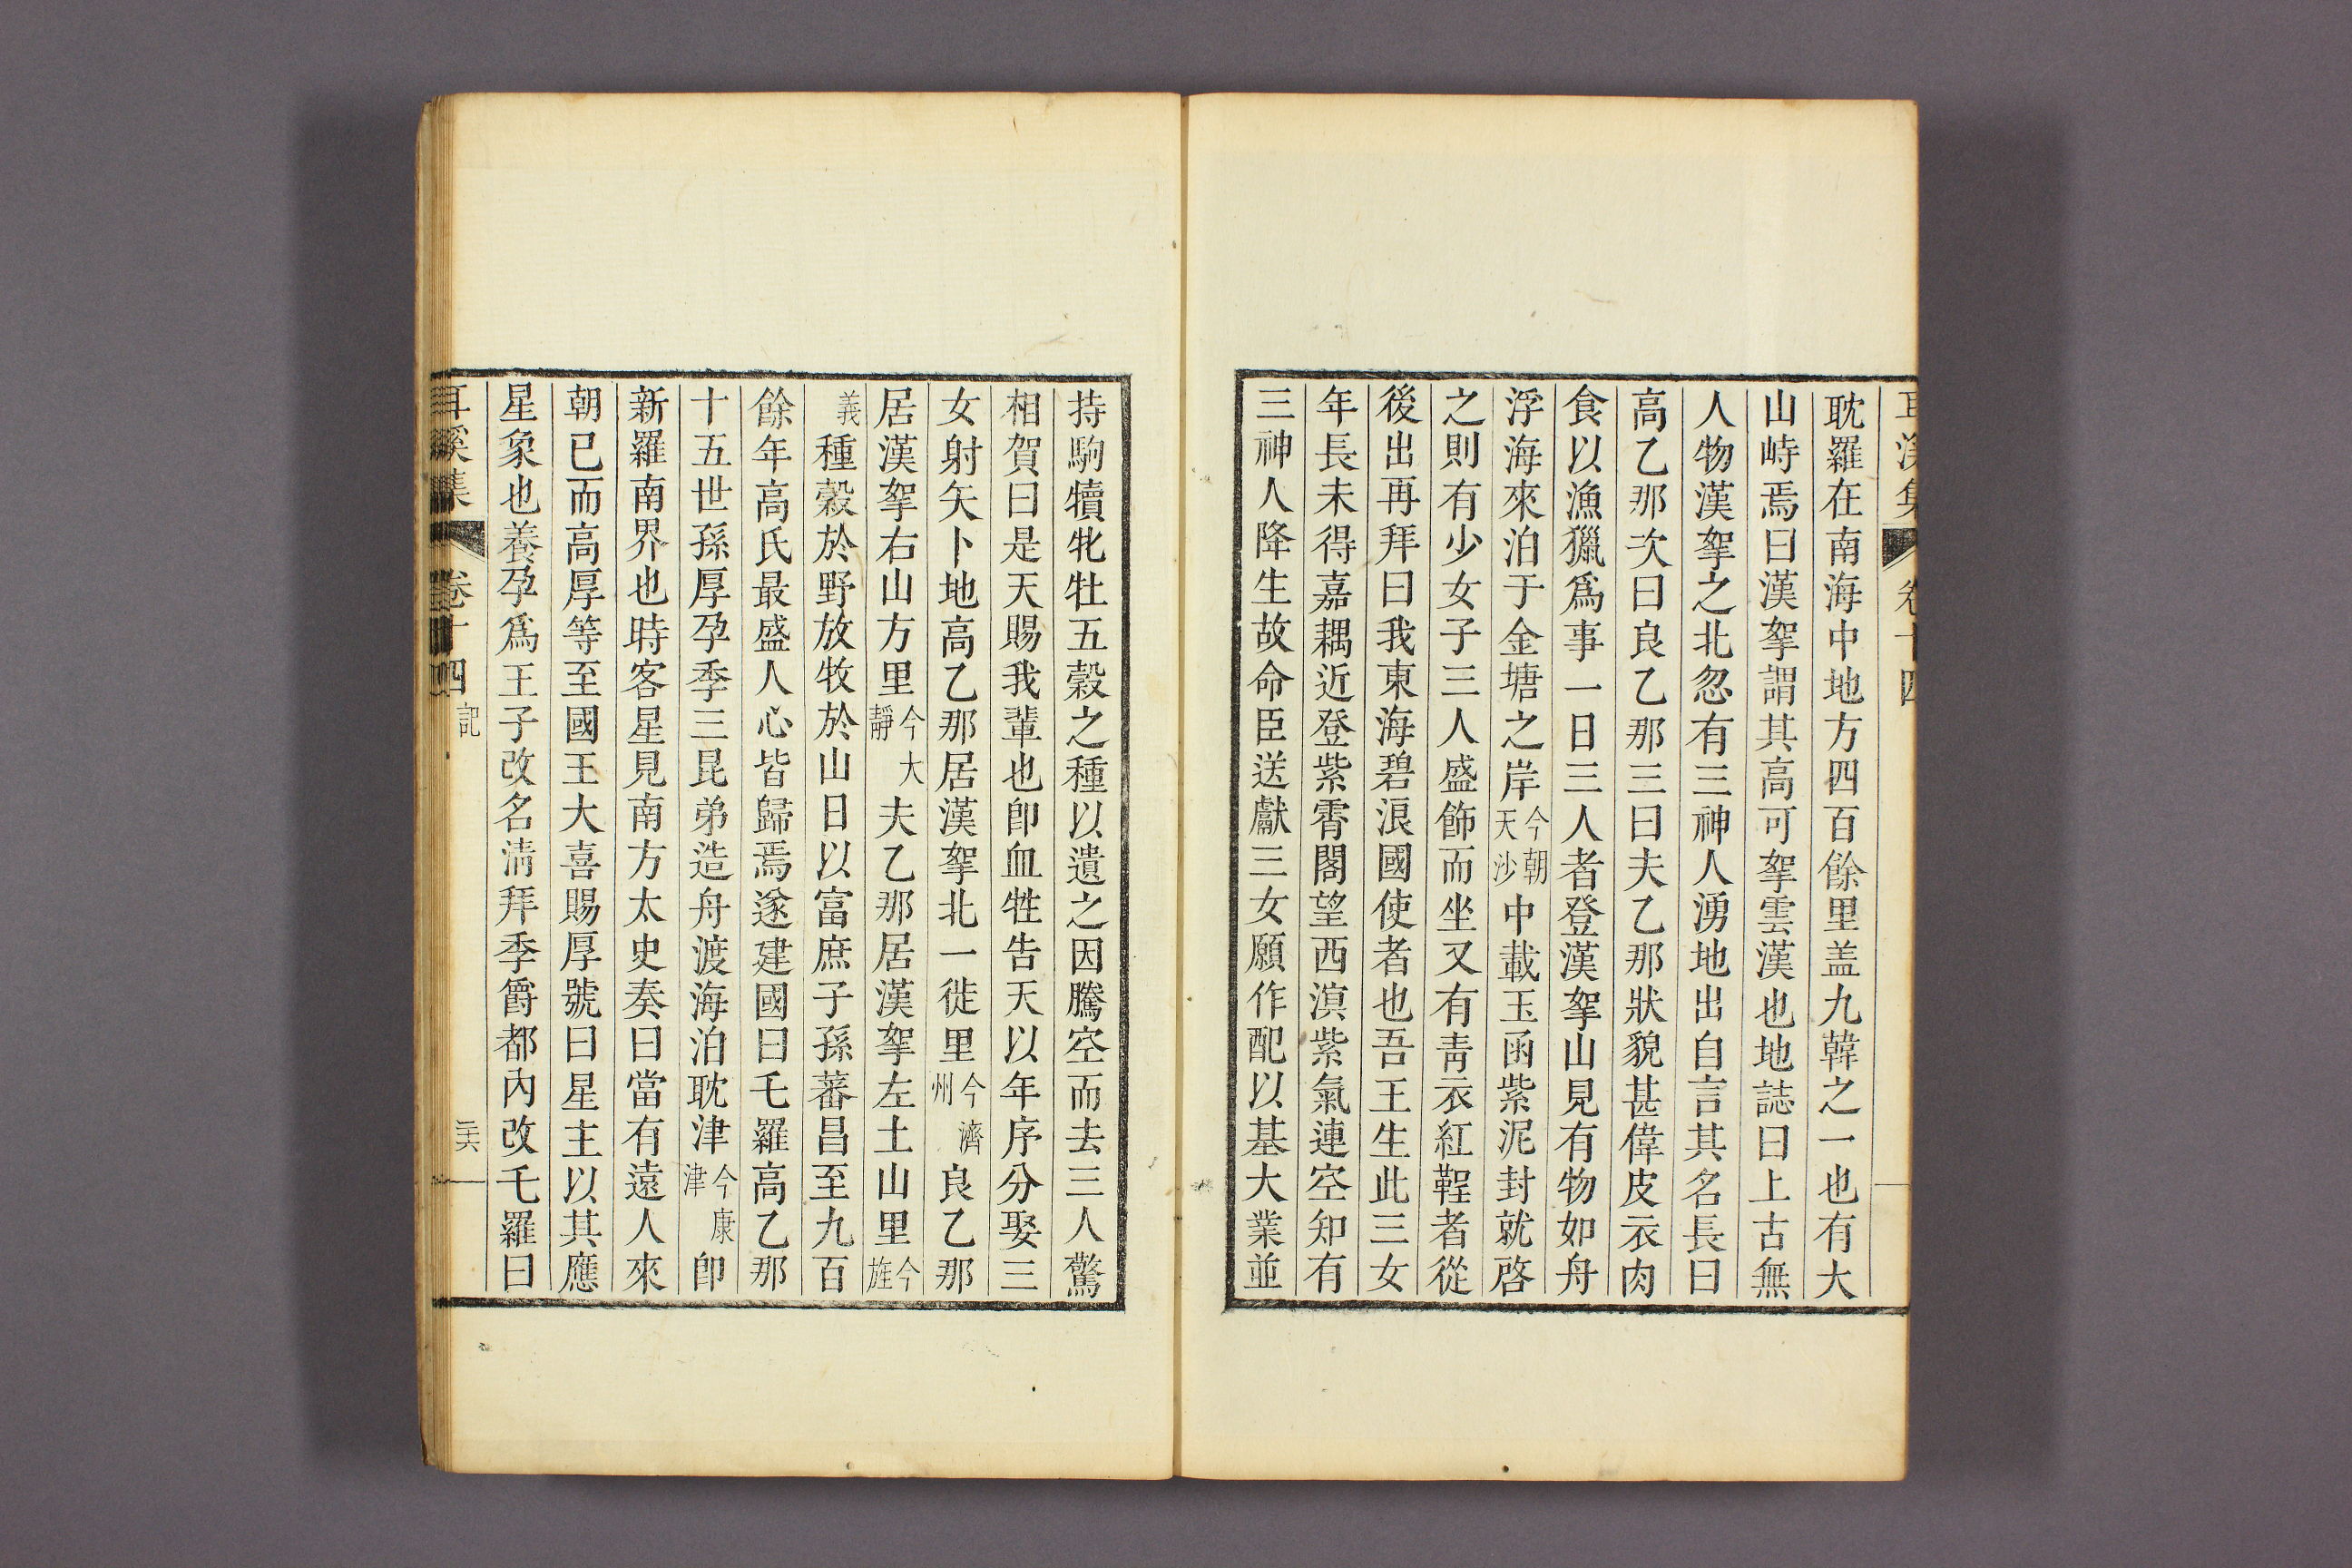 耽羅在南海中地方四百餘里盖九韓之一也有大
山峙焉曰漢拏謂其高可拏雲漢也地誌曰上古無
人物漢拏之北忽有三神人湧地出自言其名長曰
高乙那次曰良乙那三曰夫乙那狀貌甚偉皮衣肉
食以漁獵爲事一日三人者登漢拏山見有物如舟
浮海來泊于金塘之岸今朝天沙中載玉函紫泥封就啓
之則有少女子三人盛飾而坐又有靑衣紅鞓者從
後出再拜曰我東海碧浪國使者也吾王生此三女
年長未得嘉耦近登紫霄閣望西溟紫氣連空知有
三神人降生故命臣送獻三女願作配以基大業並
持駒犢牝牡五穀之種以遺之因騰空而去三人驚
相賀曰是天賜我輩也卽血牲告天以年序分娶三
女射矢卜地高乙那居漢拏北一徙里今濟州良乙那
居漢拏右山方里今大靜夫乙那居漢拏左土山里今旌
義種穀於野放牧於山日以富庶子孫蕃昌至九百
餘年高氏最盛人心皆歸焉遂建國曰乇羅高乙那
十五世孫厚孕季三昆弟造舟渡海泊耽津今康津卽
新羅南界也時客星見南方太史奏曰當有遠人來
朝已而高厚等至國王大喜賜厚號曰星主以其應
星象也養孕爲王子改名淸拜季爵都內改乇羅曰
耳溪集 卷十四 記 二六